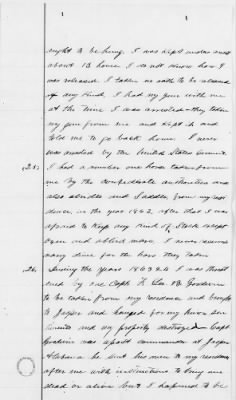 ought to be hung. I was kept under arrest
about 13 hours I do not know how I
was released. I taken no oath to be released
of any kind. I had my gun with me
at the time I was arrested they taken
my gun from me and kept it and
told me to go back home. I never
was arrested by the United States
25. I had a number one horse taken from
me by the Confederate authorities and
also a bridle and saddle from my resi
dence in the year 1862, after that I was
afraid to keep any kind of Stock except
and old mare. I never received
any dime for the horse they taken
26. During the years 1863 & 4 I was threat
ened by one Capt Goodwin
to be taken from my residence and brought
to Jasper and hanged for my Union sen
timents and my property destroyed Capt
Goodwin was a post commander at Jasper
Alabama he sent his men to my residence
after me with instructions to bring me
dead or alive but I happened to be